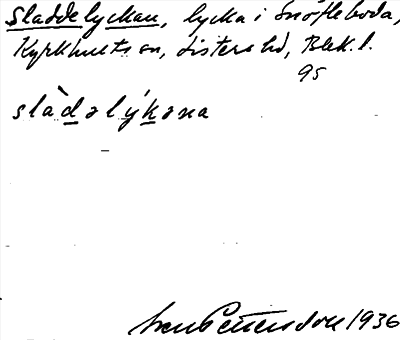 Sladdelyckan, lycka i Snöfleboda,
Kyrkhults sn, Listers hd, Blek. l.
95
slàdəlýkəna
Sven Pettersson 1936